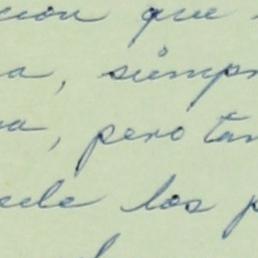 cion que
a, siempr
a, pero tan
ede los p